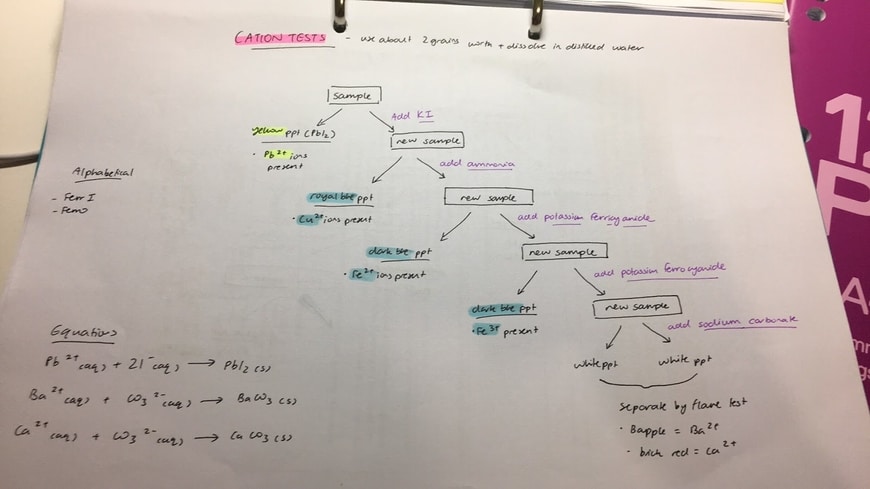 CATION TESTS - use about 2 grains worth + dissolve in distilled water
sample
Add KI
yellow ppt (PbI₂)
• Pb²⁺ ions
present
new sample
add ammonia
royal blue ppt
• Cu²⁺ ions present
new sample
add potassium ferricyanide
dark blue ppt
• Fe²⁺ ions present
new sample
add potassium ferrocyanide
dark blue ppt
• Fe³⁺ present
new sample
add sodium carbonate
white ppt
white ppt
separate by flame test
• Bapple = Ba²⁺
• brick red = Ca²⁺
Alphabetical
- Ferr I
- FerrO
Equations
Pb²⁺(aq) + 2I⁻(aq) → PbI₂(s)
Ba²⁺(aq) + CO₃²⁻(aq) → BaCO₃(s)
Ca²⁺(aq) + CO₃²⁻(aq) → CaCO₃(s)